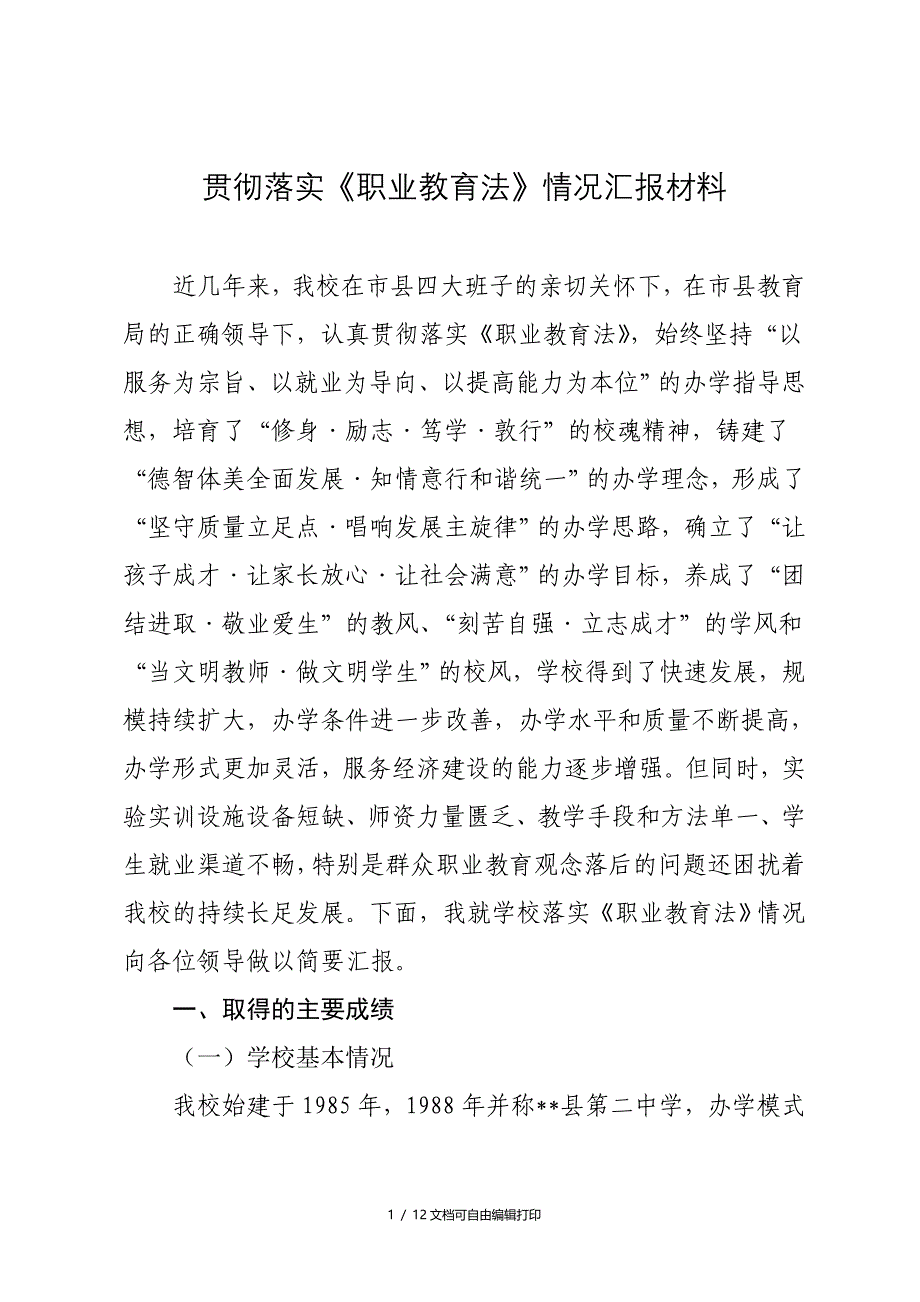 贯彻落实《职业教育法》情况汇报材料
近几年来，我校在市县四大班子的亲切关怀下，在市县教育
局的正确领导下，认真贯彻落实《职业教育法》，始终坚持“以
服务为宗旨、以就业为导向、以提高能力为本位”的办学指导思
想，培育了“修身·励志·笃学·敦行”的校魂精神，铸建了
“德智体美全面发展·知情意行和谐统一”的办学理念，形成了
“坚守质量立足点·唱响发展主旋律”的办学思路，确立了“让
孩子成才·让家长放心·让社会满意”的办学目标，养成了“团
结进取·敬业爱生”的教风、“刻苦自强·立志成才”的学风和
“当文明教师·做文明学生”的校风，学校得到了快速发展，规
模持续扩大，办学条件进一步改善，办学水平和质量不断提高，
办学形式更加灵活，服务经济建设的能力逐步增强。但同时，实
验实训设施设备短缺、师资力量匮乏、教学手段和方法单一、学
生就业渠道不畅，特别是群众职业教育观念落后的问题还困扰着
我校的持续长足发展。下面，我就学校落实《职业教育法》情况
向各位领导做以简要汇报。
一、取得的主要成绩
（一）学校基本情况
我校始建于1985年，1988年并称**县第二中学，办学模式
1 / 12文档可自由编辑打印